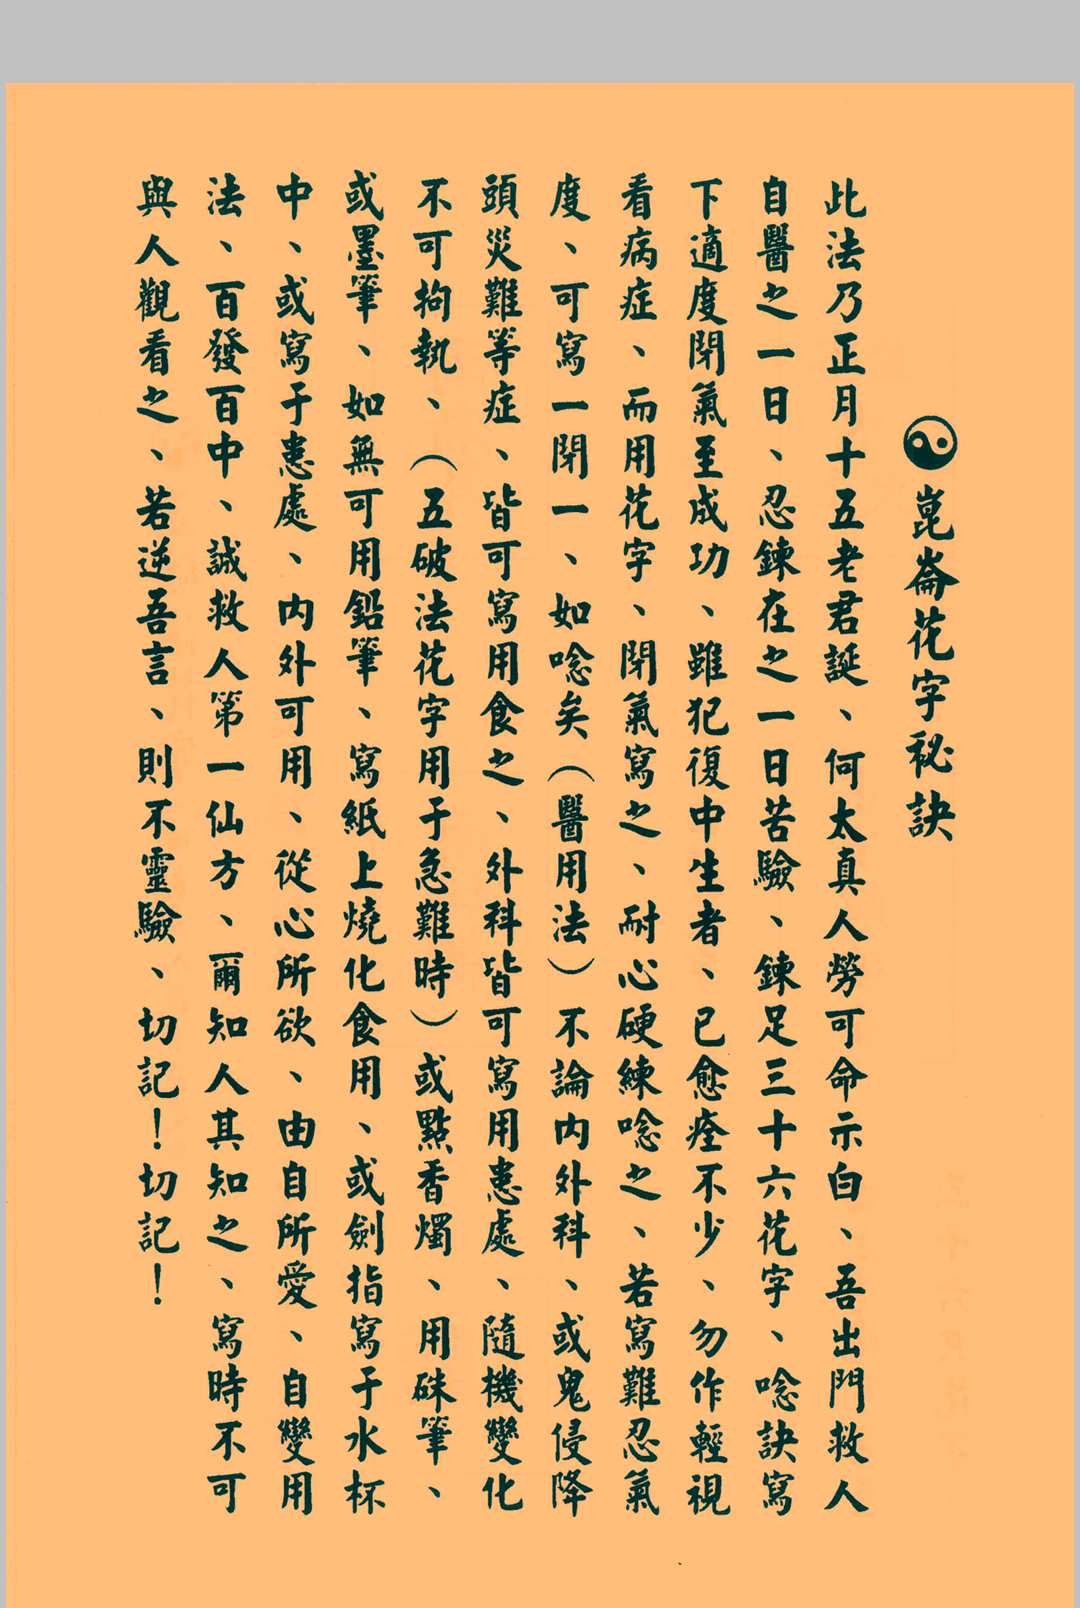 崑崙花字秘訣
此法乃正月十五老君誕、何太真人勞可命示白、吾出門救人
自醫之一日、忍鍊在之一日苦驗、鍊足三十六花字、唸訣寫
下適度閉氣至成功、雖犯復中生者、已愈痊不少、勿作輕視
看病症、而用花字、閉氣寫之、耐心硬練唸之、若寫難忍氣
度、可寫一閉一、如唸矣（醫用法）不論内外科、或鬼侵降
頭災難等症、皆可寫用食之、外科皆可寫用患處、隨機變化
不可拘執、（五破法花字用于急難時）或點香燭、用硃筆、
或墨筆、如無可用鉛筆、寫紙上燒化食用、或劍指寫于水杯
中、或寫于患處、内外可用、從心所欲、由自所愛、自變用
法、百發百中、誠救人第一仙方、爾知人其知之、寫時不可
與人觀看之、若逆吾言、則不靈驗、切記！切記！